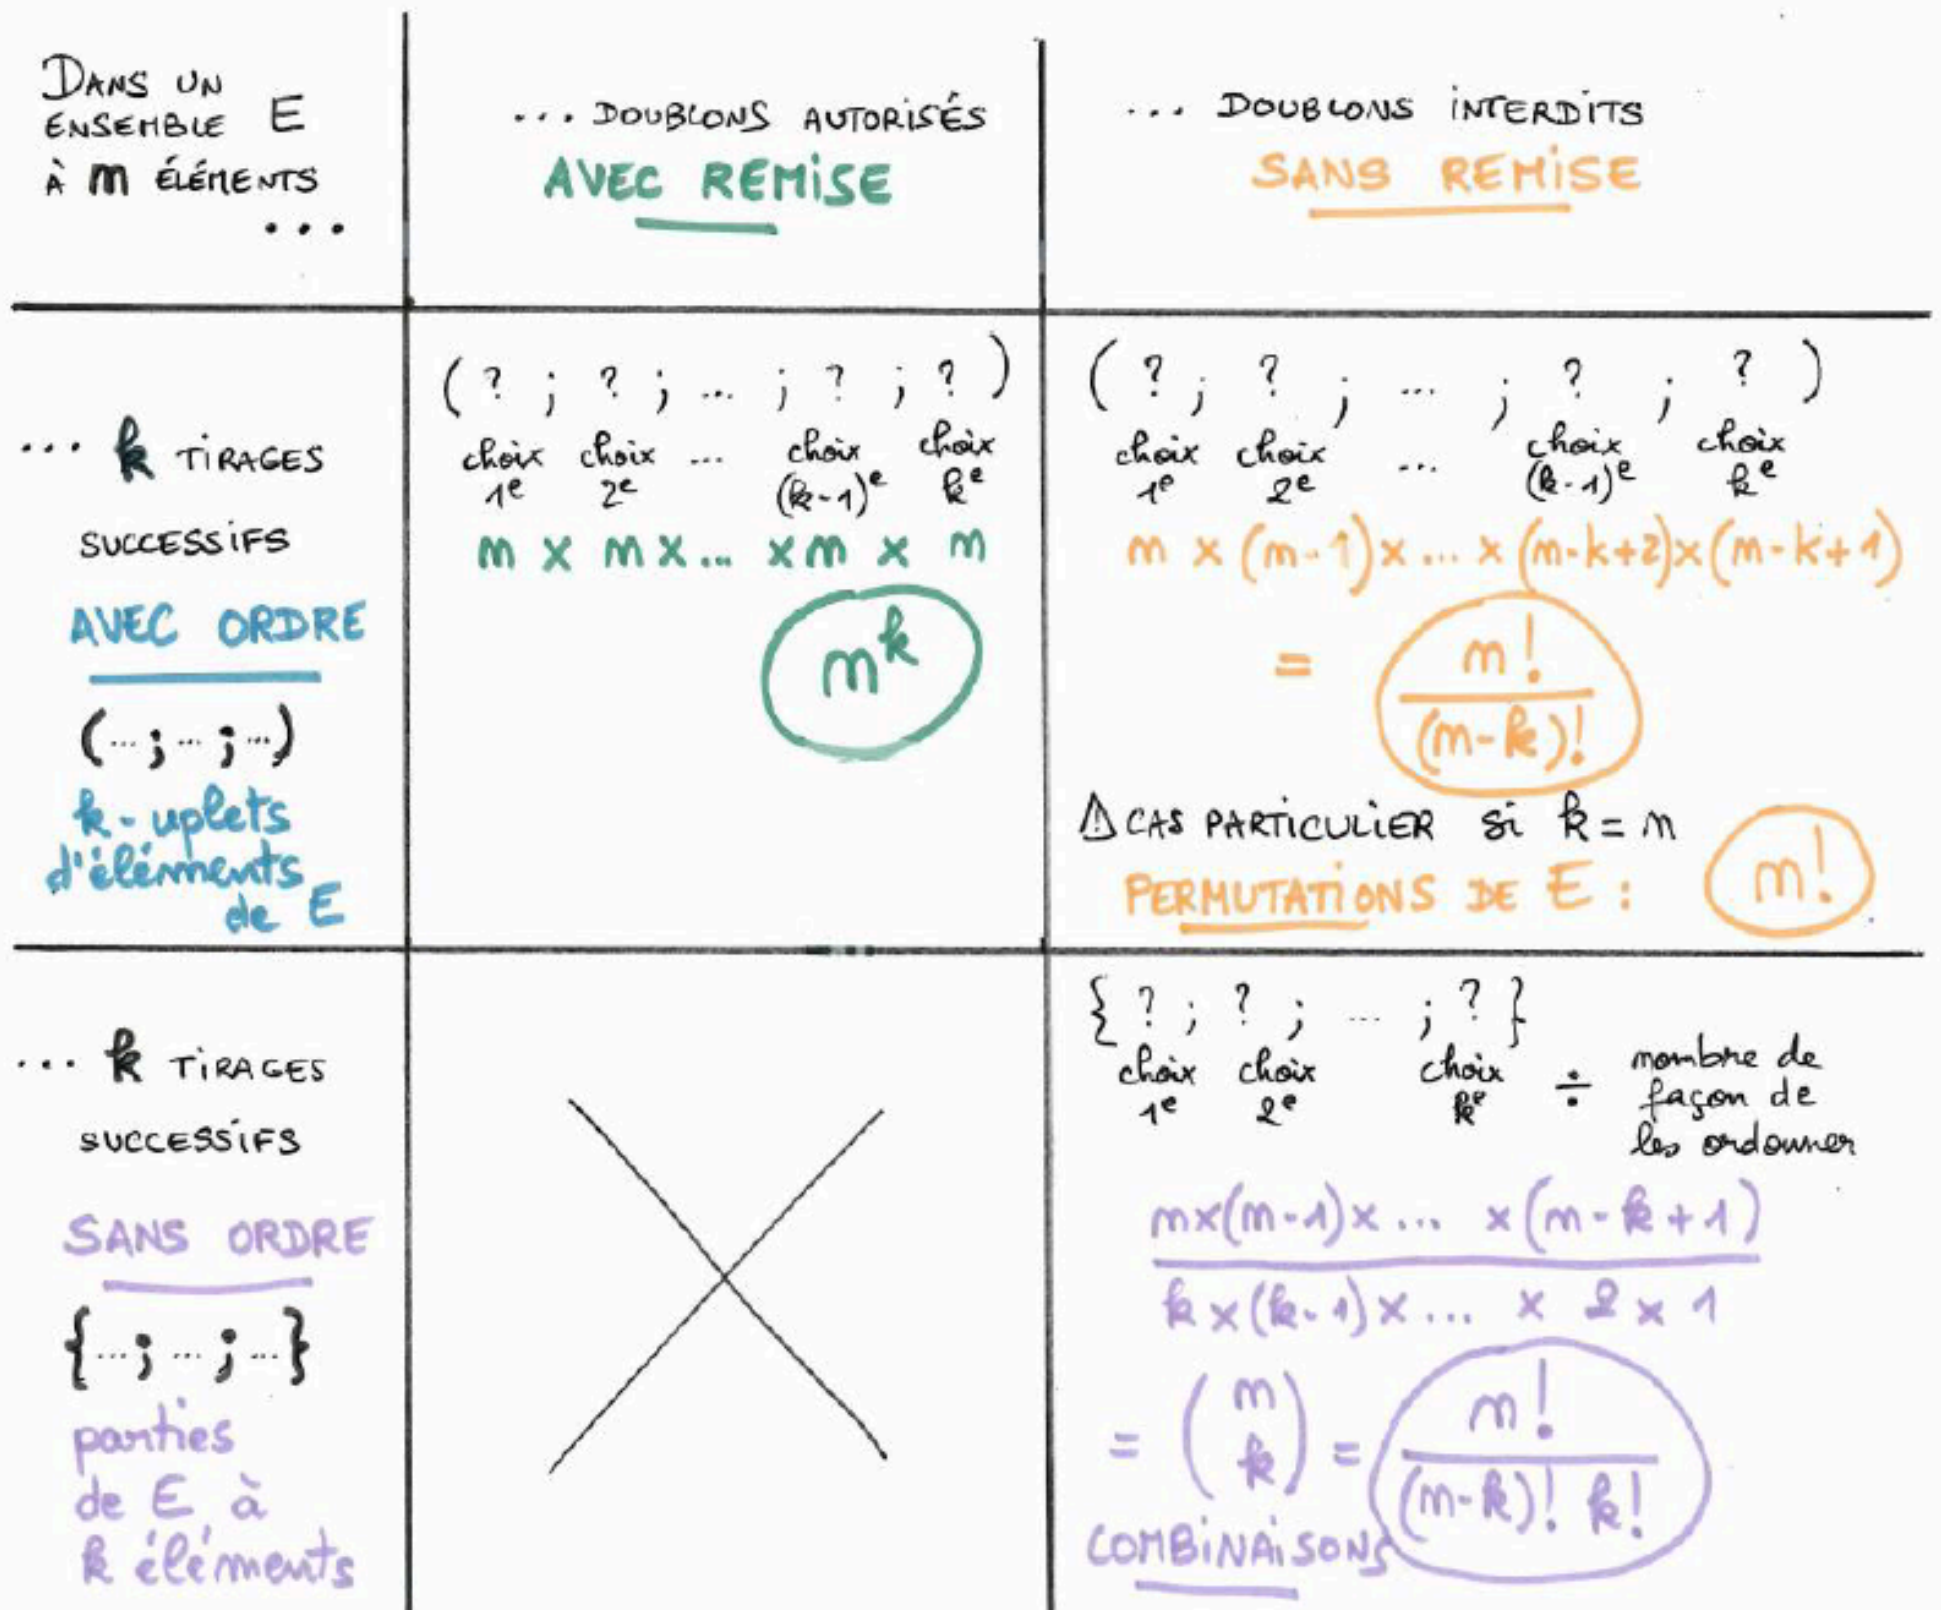 DANS UN
ENSEMBLE E
À n ÉLÉMENTS
...
... DOUBLONS AUTORISÉS
AVEC REMISE
... DOUBLONS INTERDITS
SANS REMISE
... k TIRAGES
SUCCESSIFS
AVEC ORDRE
(...;...;...)
k-uplets
d'éléments
de E
( ? ; ? ; ... ; ? ; ? )
choix choix ... choix choix
1e 2e (k-1)e ke
n × n × ... × n × n
n^k
( ? ; ? ; ... ; ? ; ? )
choix choix ... choix choix
1e 2e (k-1)e ke
n × (n-1) × ... × (n-k+2) × (n-k+1)
= n!
(n-k)!
⚠ CAS PARTICULIER si k = n
PERMUTATIONS DE E : n!
... k TIRAGES
SUCCESSIFS
SANS ORDRE
{...;...;...}
parties
de E à
k éléments
{ ? ; ? ; ... ; ? }
choix choix choix
1e 2e ke
÷ nombre de
façon de
les ordonner
n×(n-1)× ... ×(n-k+1)
k×(k-1)× ... × 2 × 1
= (n k) = n!
(n-k)! k!
COMBINAISONS